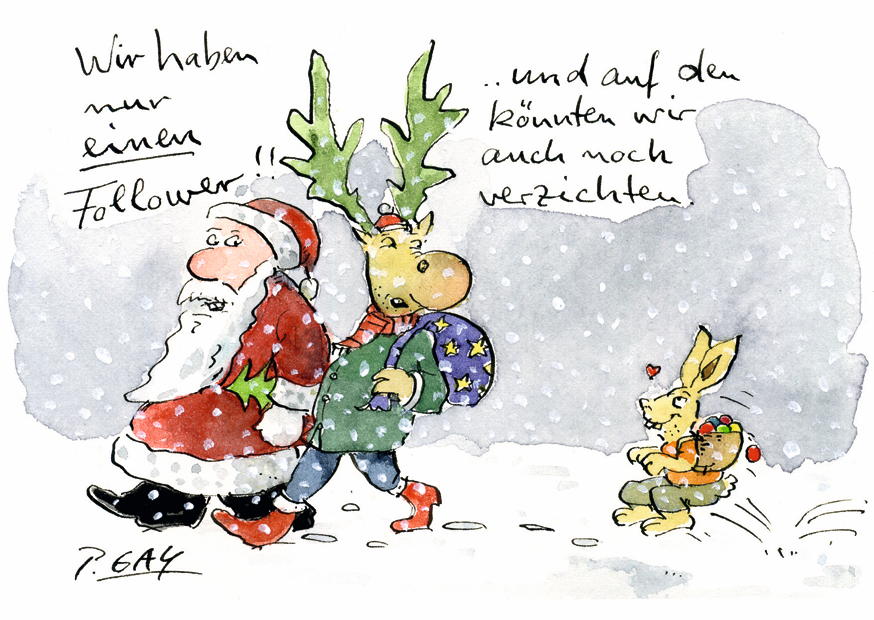 Wir haben
nur
einen
Follower!!
..und auf den
könnten wir
auch noch
verzichten.
P. GAY